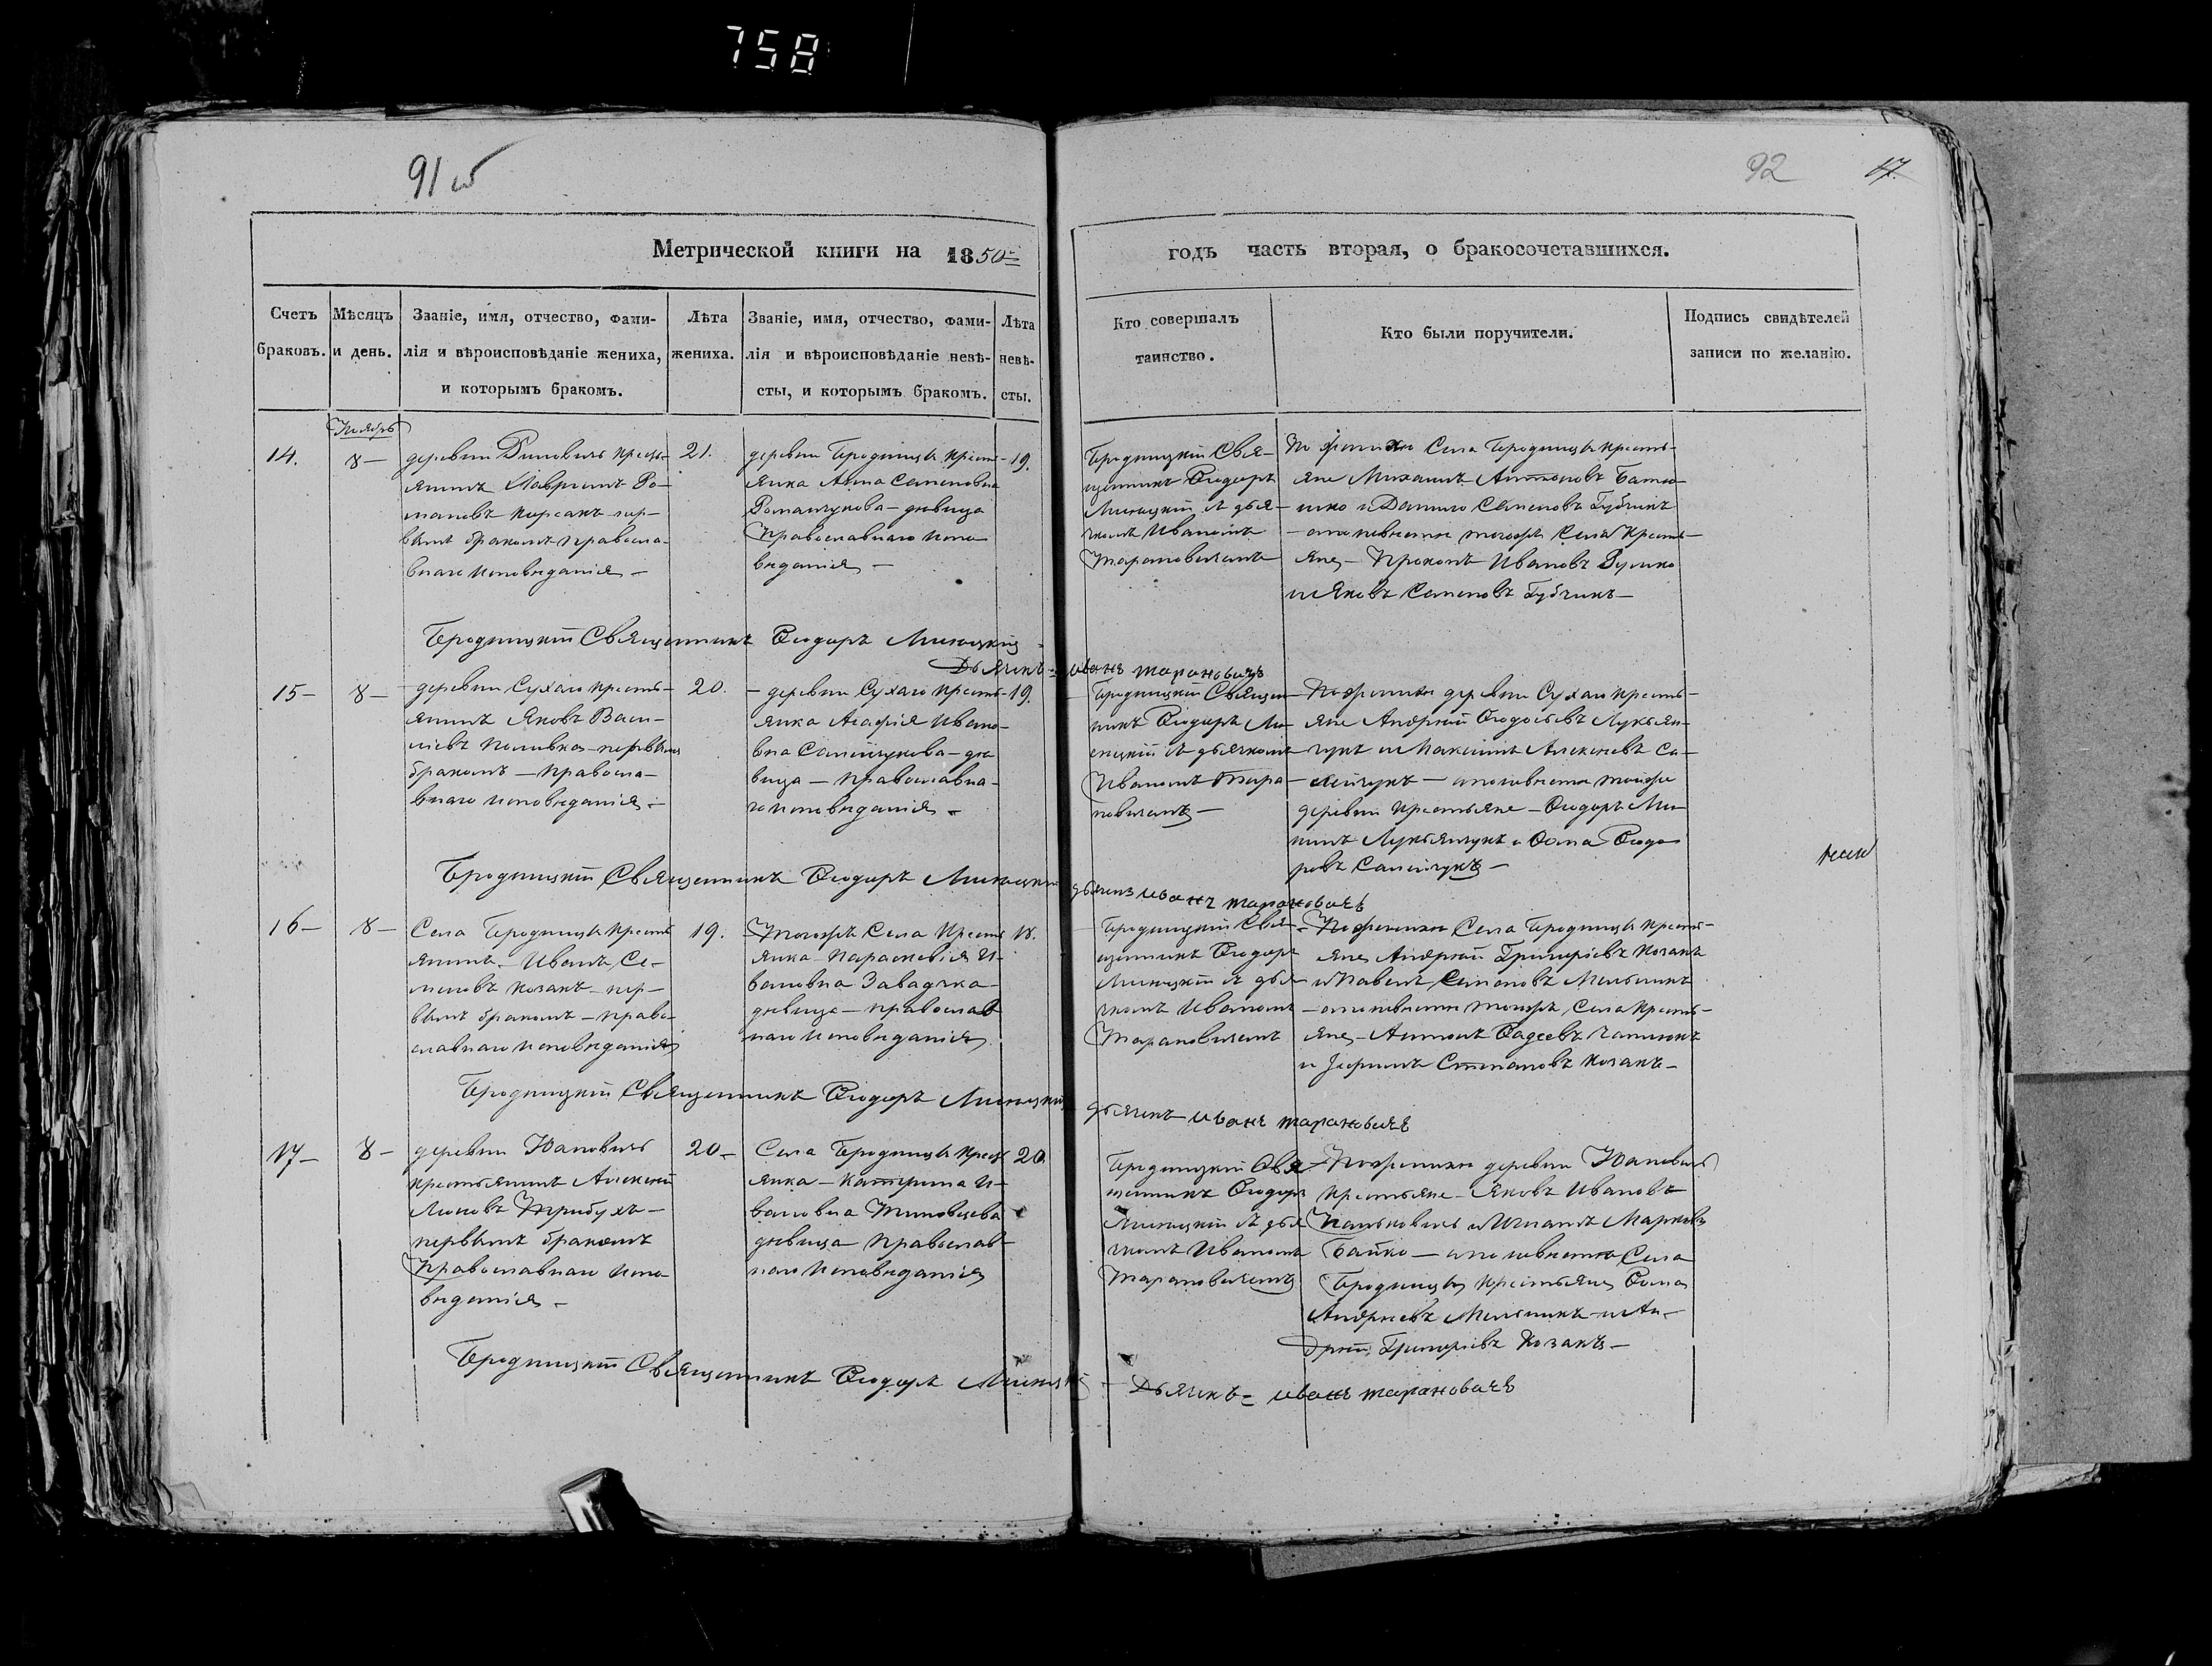 758
91 об
92
17.
Метрической книги на 1850
годъ часть вторая, о бракосочетавшихся.
Счетъ браковъ.
Мѣсяцъ и день.
Званіе, имя, отчество, фами-
лія и вѣроисповѣданіе жениха,
и которымъ бракомъ.
Лѣта
жениха.
Званіе, имя, отчество, фами-
лія и вѣроисповѣданіе невѣ-
сты, и которымъ бракомъ.
Лѣта
невѣ-
сты.
Кто совершалъ
таинство.
Кто были поручители.
Подпись свидѣтелей
записи по желанію.
Ноябрь
14.
8-
деревни кресть-
янинъ Лаврынъ Ро-
мановъ Корсакъ пер-
вымъ бракомъ православ-
внаго исповѣданія
21.
деревни Бродницы крест-
янка Анна Семеновна
Романчукова - дѣвица
Православнаго испо
вѣданія
19.
Бродницкій Свя-
щенникъ Ѳеодоръ
Миницкій съ дья-
чкомъ Иваномъ
Тарановичемъ
По женихѣ Села Бродницы кресть-
яне Михаилъ Антоновъ
и Данило Семеновъ Губчикъ
- а по невѣстѣ тогожъ Села кресть-
яне - Прокопъ Ивановъ
и Яковъ Семеновъ Губчикъ
Бродницкій Священникъ Ѳеодоръ Миницкій
Дьячкъ = иванъ тарановичъ
15-
8-
деревни Сухаго кресть-
янинъ Яковъ Васи-
ліевъ Поливка первым
бракомъ - правосла-
внаго исповѣданія
20.
деревни Сухаго кресть-
янка Агафія Ивано-
вна Самойчукова - дѣ
вица - православна-
го исповѣданія
19.
Бродницкій Священ-
никъ Ѳеодоръ Ми-
ницкій съ дьячкомъ
Иваномъ Тара-
новичемъ
По женихѣ деревни Сухаго кресть-
яне Андрей Ѳеодосьевъ Лукьян-
чукъ и Максимъ Алексеевъ Са-
мойчукъ - а по невѣсте тойже
деревни крестьяне - Ѳеодоръ Ми-
нинъ Лукьянчукъ и Ѳома Ѳеодо
ровъ Самойчукъ
Бродницкій Священникъ Ѳеодоръ Миницкій
дьячкъ иванъ тарановичъ
16-
8-
Села Бродницы кресть
янинъ - Иванъ Се-
меновъ Козакъ - пер-
вымъ бракомъ - право-
славнаго исповѣданія
19.
Тогожъ Села крестъ
янка - Параскевія И-
вановна Завадчка
дѣвица - православ
наго исповѣданія
18.
Бродницкій Свя-
щенникъ Ѳеодоръ
Миницкій съ дья
чкомъ Иваномъ
Тарановичемъ
По женихѣ Села Бродницы кресть-
яне Андрей Григоріевъ Козакъ
и Павелъ Семеновъ Мельникъ
- а по невѣсте тогожъ Села кресть-
яне - Антонъ Фадеевъ
и Степановъ Козакъ
Бродницкій Священникъ Ѳеодоръ Миницкій
дьячкъ - иванъ тарановичъ
17-
8-
деревни Юановичъ
крестьянинъ Алексей
Трибухъ
первымъ бракомъ
Православнаго испо-
вѣданія
20-
Села Бродницы крест
янка - Катерина И-
вановна
дѣвица православ
наго исповѣданія
20.
Бродницкій Свя
щенникъ Ѳеодоръ
Миницкій съ дья
чкомъ Иваномъ
Тарановичемъ
По женихѣ деревни Юановичъ
крестьяне - Яковъ Ивановъ
Паньковичъ и Игнатъ Марковъ
Байко - а по невѣсте Села
Бродницы крестьяне Ѳома
Андреевъ Мельникъ и Ан-
дрей Григоріевъ Козакъ
Бродницкій Священникъ Ѳеодоръ Миницкій
Дьячкъ = иванъ тарановичъ